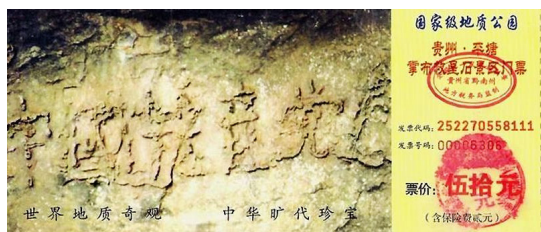 中國共産党
世界地质奇观
中华旷代珍宝
国家级地质公园
贵州·平塘
掌布救星石景区门票
贵州省黔南州
地方税务局监制
发票代码：252270558111
发票号码：00006306
票价：伍拾元
（含保险费贰元）